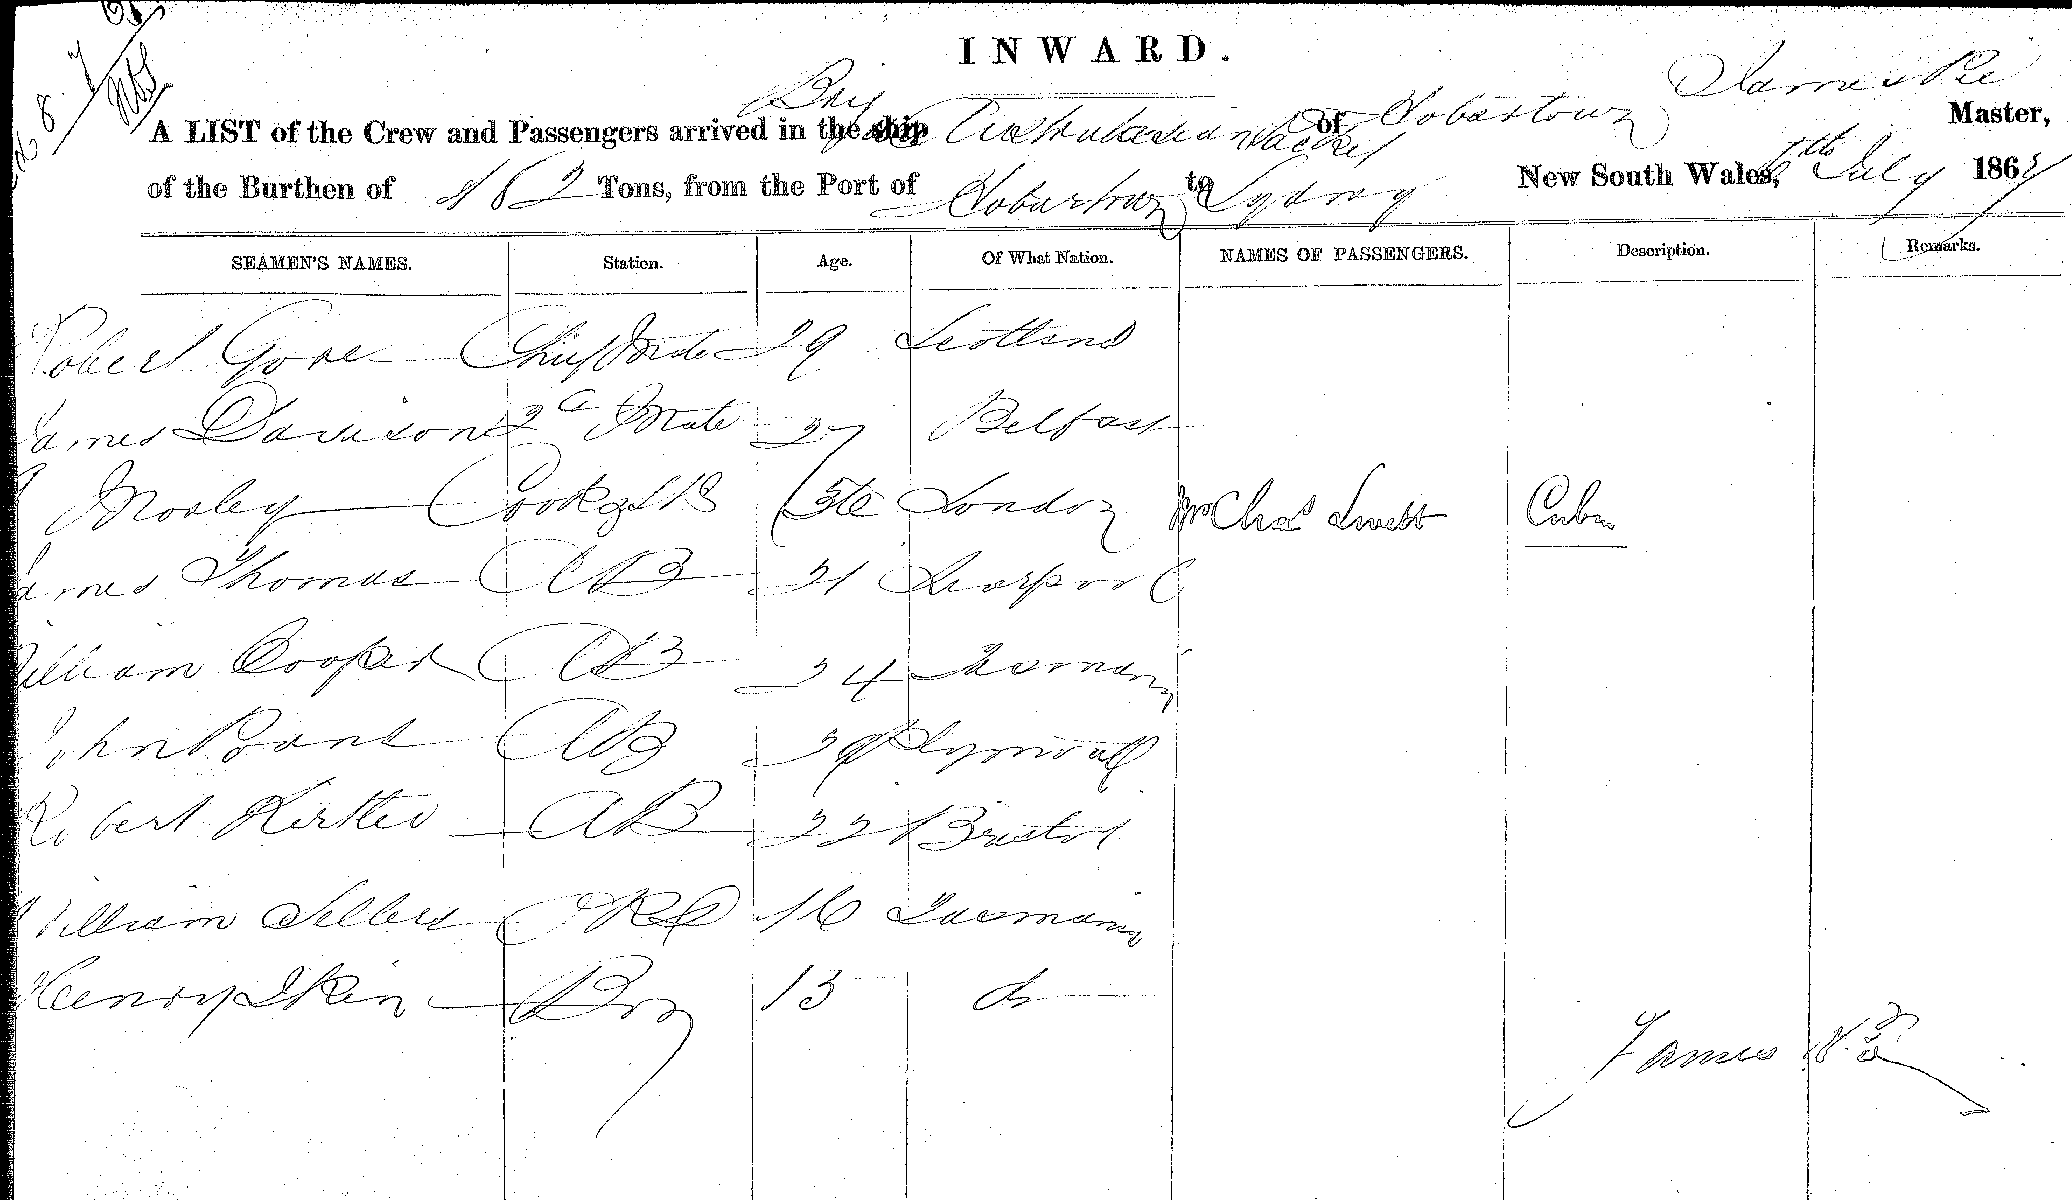 INWARD.
A LIST of the Crew and Passengers arrived in the ship Brig Australasian Packet of Hobartown James Pie Master,
of the Burthen of 182 Tons, from the Port of Hobartown to Sydney New South Wales, July 186
SEAMEN'S NAMES. Station. Age. Of What Nation. NAMES OF PASSENGERS. Description. Remarks.
Robert Gore Chief Mate 29 Scotland
James Davison 2d Mate 27 Belfast
Mosley Cook & St London Mr Chas Cabin
James Thomas AB 21 Liverpool
William Cooper AB 24
John AB Plymouth
Robert AB 22 Bristol
William Sellers 16 Tasmania
Henry Ikin Boy 13 do
James Pie